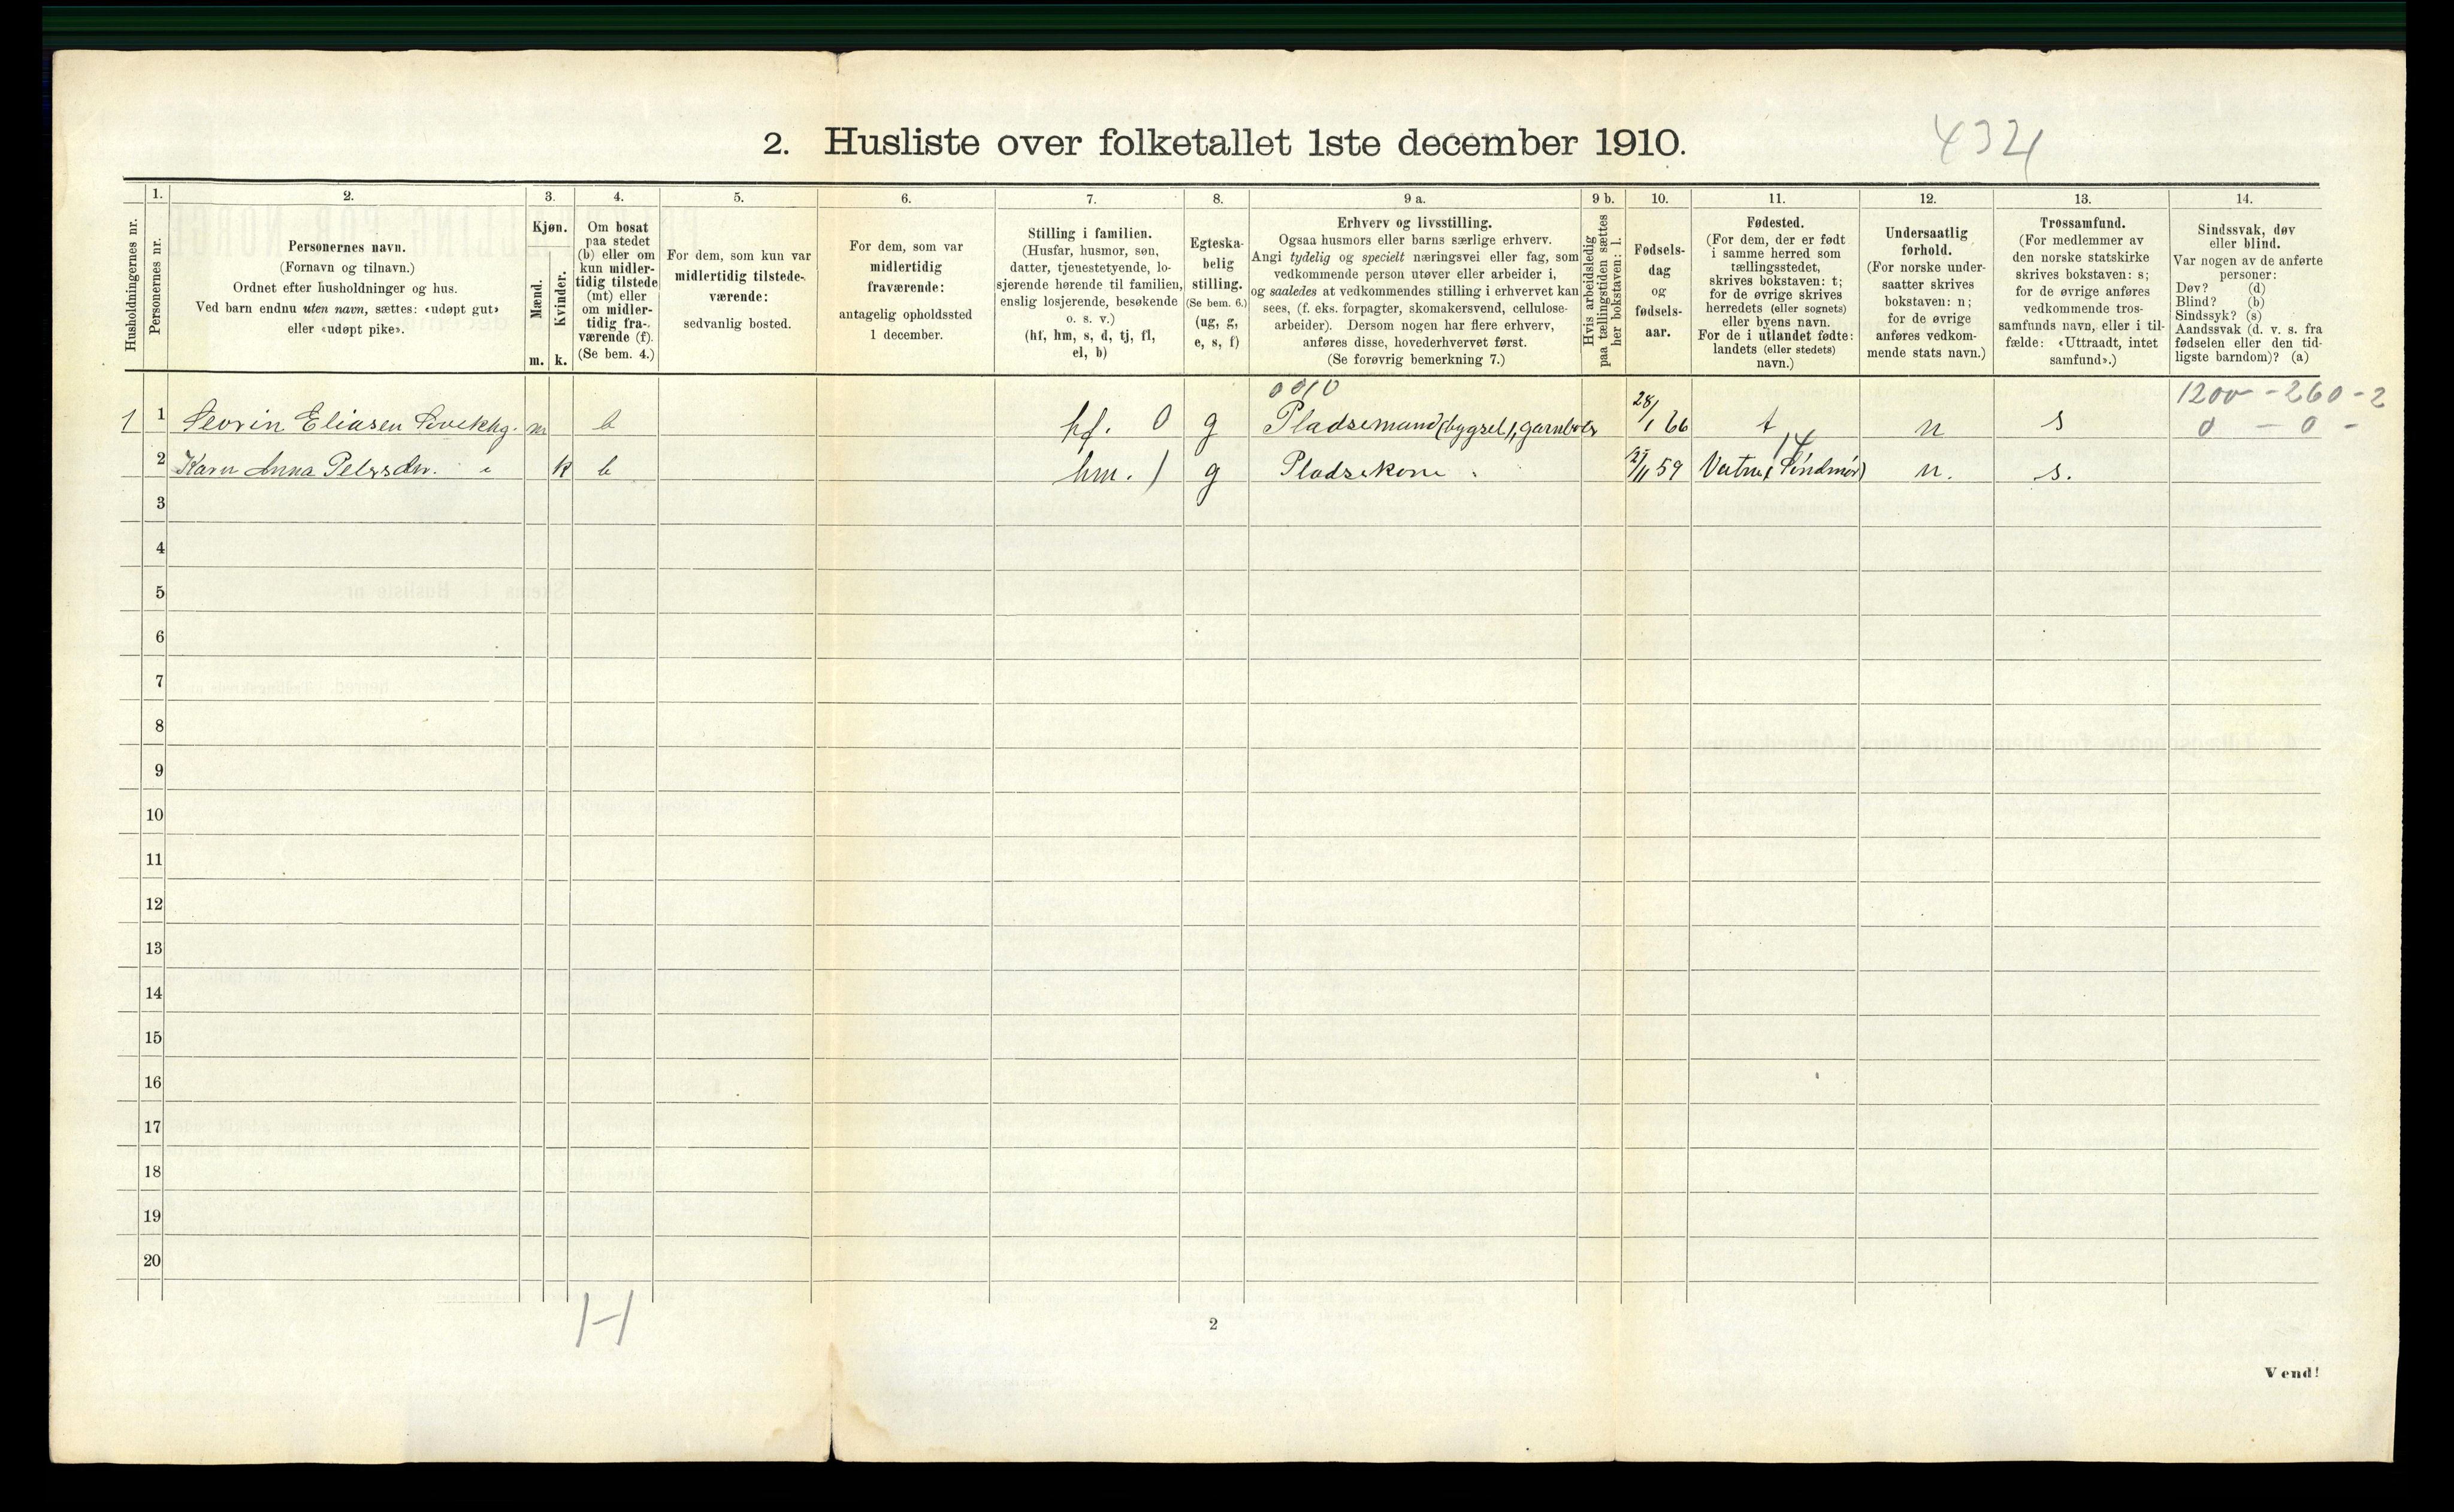 2. Husliste over folketallet 1ste december 1910.
432
Husholdningernes nr.
1.
Personernes nr.
2.
Personernes navn.
(Fornavn og tilnavn.)
Ordnet efter husholdninger og hus.
Ved barn endnu uten navn, sættes: «udøpt gut»
eller «udøpt pike».
3.
Kjøn.
Mænd.
m.
Kvinder.
k.
4.
Om bosat
paa stedet
(b) eller om
kun midler-
tidig tilstede
(mt) eller
om midler-
tidig fra-
værende (f).
(Se bem. 4.)
5.
For dem, som kun var
midlertidig tilstede-
værende:
sedvanlig bosted.
6.
For dem, som var
midlertidig
fraværende:
antagelig opholdssted
1 december.
7.
Stilling i familien.
(Husfar, husmor, søn,
datter, tjenestetyende, lo-
sjerende hørende til familien,
enslig losjerende, besøkende
o. s. v.)
(hf, hm, s, d, tj, fl,
el, b)
8.
Egteska-
belig
stilling.
(Se bem. 6.)
(ug, g,
e, s, f)
9 a.
Erhverv og livsstilling.
Ogsaa husmors eller barns særlige erhverv.
Angi tydelig og specielt næringsvei eller fag, som
vedkommende person utøver eller arbeider i,
og saaledes at vedkommendes stilling i erhvervet kan
sees, (f. eks. forpagter, skomakersvend, cellulose-
arbeider). Dersom nogen har flere erhverv,
anføres disse, hovederhvervet først.
(Se forøvrig bemerkning 7.)
9 b.
Hvis arbeidsledig
paa tællingstiden sættes
her bokstaven: l.
10.
Fødsels-
dag
og
fødsels-
aar.
11.
Fødested.
(For dem, der er født
i samme herred som
tællingsstedet,
skrives bokstaven: t;
for de øvrige skrives
herredets (eller sognets)
eller byens navn.
For de i utlandet fødte:
landets (eller stedets)
navn.)
12.
Undersaatlig
forhold.
(For norske under-
saatter skrives
bokstaven: n;
for de øvrige
anføres vedkom-
mende stats navn.)
13.
Trossamfund.
(For medlemmer av
den norske statskirke
skrives bokstaven: s;
for de øvrige anføres
vedkommende tros-
samfunds navn, eller i til-
fælde: «Uttraadt, intet
samfund».)
14.
Sindssvak, døv
eller blind.
Var nogen av de anførte
personer:
Døv? (d)
Blind? (b)
Sindssyk? (s)
Aandssvak (d. v. s. fra
fødselen eller den tid-
ligste barndom)? (a)
0010
1200 - 260 - 2
1 1 Sevrin Eliasen m b hf. 0 g Pladsemand (bygsel), 28/1 66 t n s 0 - 0 -
14
2 Karn Anna k b hm. 1 g Pladsekone /11 59 Vatne, Söndmör) n. s.
3
4
5
6
7
8
9
10
11
12
13
14
15
16
17
18
19
20
H
2
Vend!